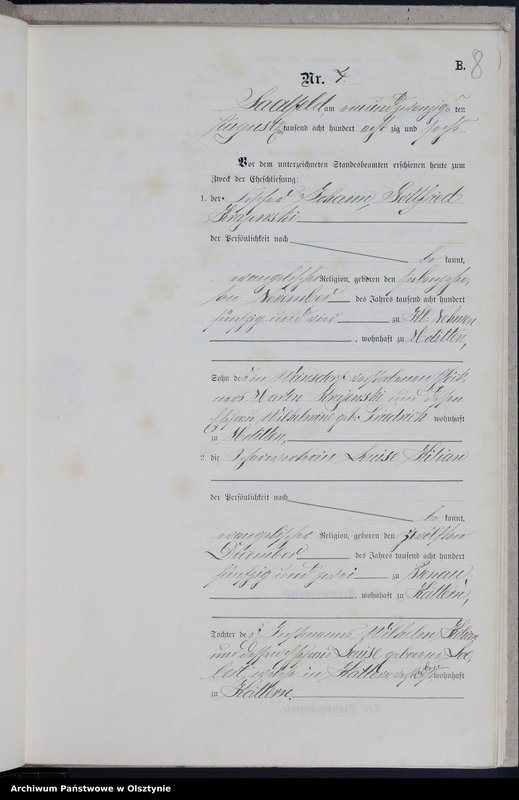 B. 8
Nr. 4
Saalfeld am einundzwanzigsten
August tausend acht hundert achtzig und sechs
Vor dem unterzeichneten Standesbeamten erschienen heute zum
Zweck der Eheschließung:
1. der Johann Gottfried
Krajewski
der Persönlichkeit nach
be kannt,
evangelischer Religion, geboren den
November des Jahres tausend acht hundert
fünfzig und vier zu Kl.
, wohnhaft zu Motitten,
Sohn des in Weinsdorf verstorbenen
Martin Krajewski und dessen
Ehefrau Wilhelmine geb. Friedrich wohnhaft
zu Motitten,
2. die Louise Kilian
der Persönlichkeit nach
be kannt,
evangelischer Religion, geboren den zwölften
Dezember des Jahres tausend acht hundert
fünfzig und zwei zu Banau
, wohnhaft zu Kattern,
Tochter des Wilhelm Kilian
und dessen Ehefrau Louise geborene
in Kattern wohnhaft
zu Kattern.
Archiwum Państwowe w Olsztynie